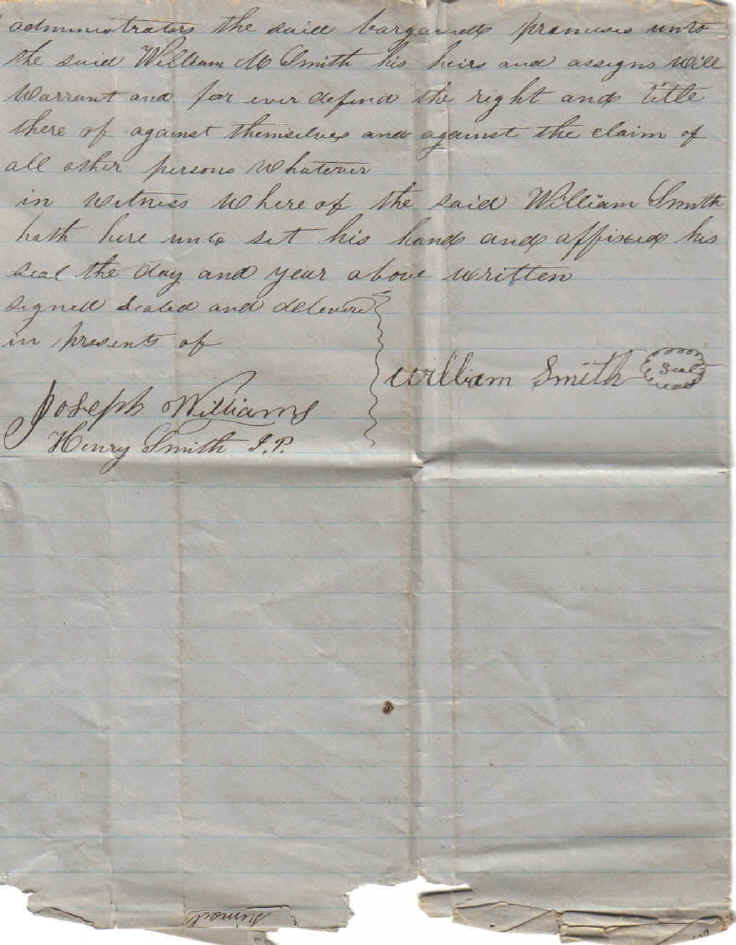 administrators the said bargained premises unto
the said William M Smith his heirs and assigns will
warrant and for ever defend the right and title
there of against themselves and against the claim of
all other persons whatever
in witness where of the said William Smith
hath here unto set his hand and affixed his
seal the day and year above written
signed sealed and delivered
in presents of
William Smith Seal
Joseph Williams
Henry Smith J.P.